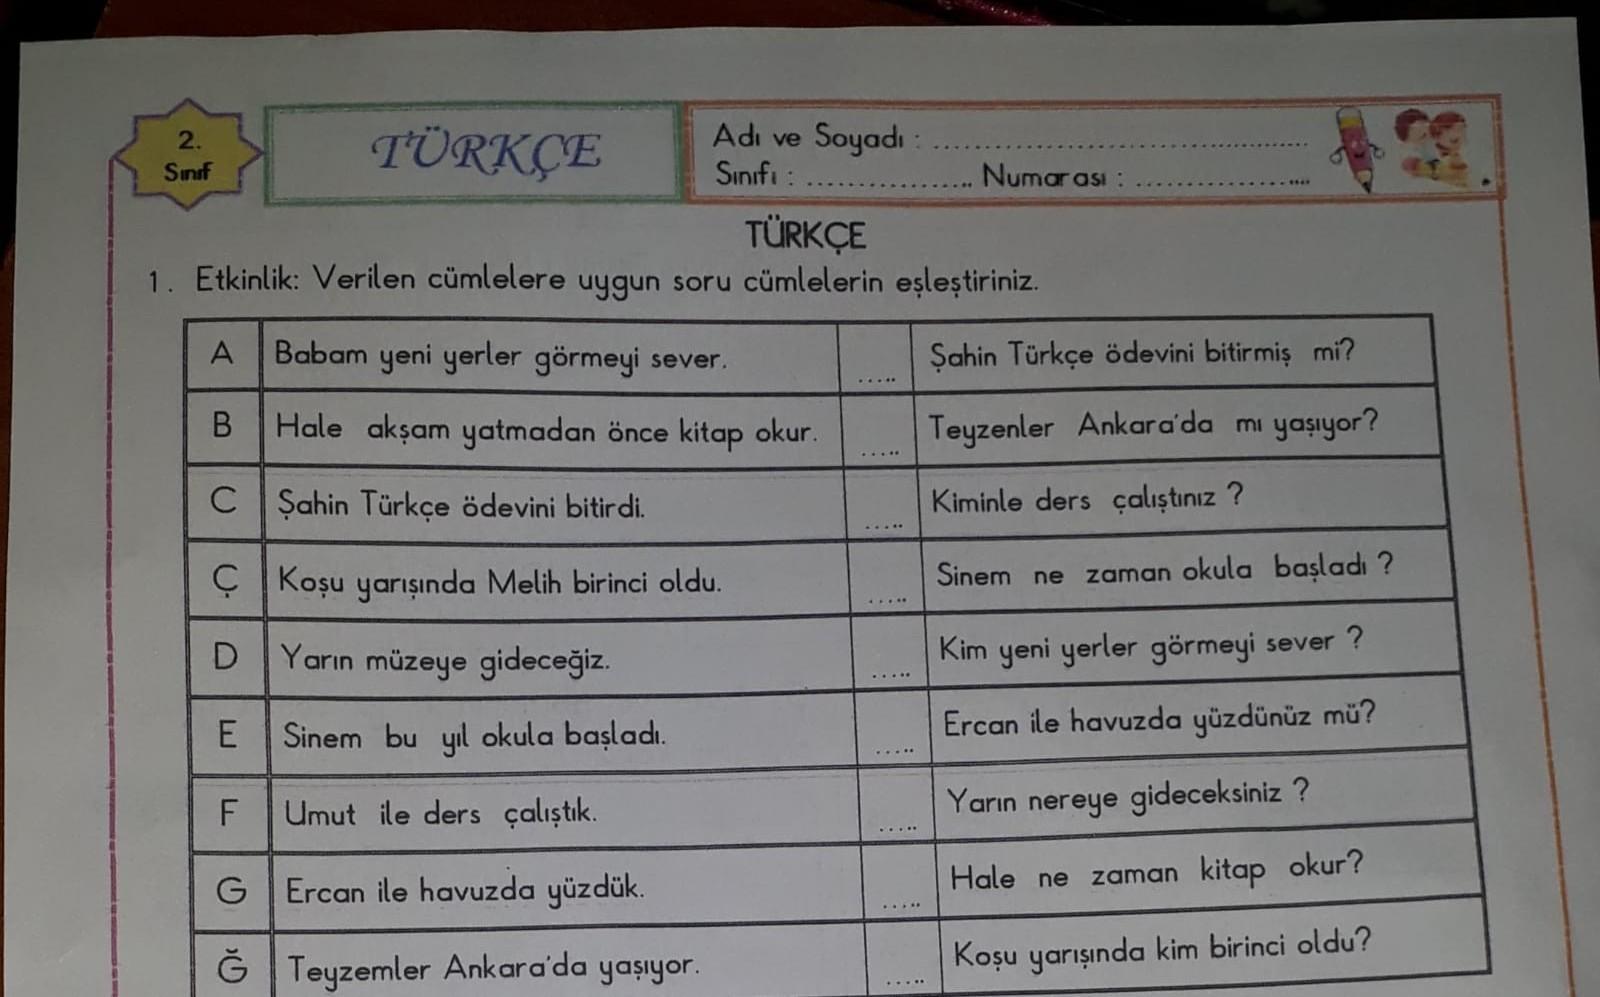 2.
Sınıf
TÜRKÇE
Adı ve Soyadı : ......................................................
Sınıfı : ..................... Numarası : ......................
TÜRKÇE
1. Etkinlik: Verilen cümlelere uygun soru cümlelerin eşleştiriniz.
A Babam yeni yerler görmeyi sever. ..... Şahin Türkçe ödevini bitirmiş mi?
B Hale akşam yatmadan önce kitap okur. ..... Teyzenler Ankara'da mı yaşıyor?
C Şahin Türkçe ödevini bitirdi. ..... Kiminle ders çalıştınız ?
Ç Koşu yarışında Melih birinci oldu. ..... Sinem ne zaman okula başladı ?
D Yarın müzeye gideceğiz. ..... Kim yeni yerler görmeyi sever ?
E Sinem bu yıl okula başladı. ..... Ercan ile havuzda yüzdünüz mü?
F Umut ile ders çalıştık. ..... Yarın nereye gideceksiniz ?
G Ercan ile havuzda yüzdük. ..... Hale ne zaman kitap okur?
Ğ Teyzemler Ankara'da yaşıyor. ..... Koşu yarışında kim birinci oldu?